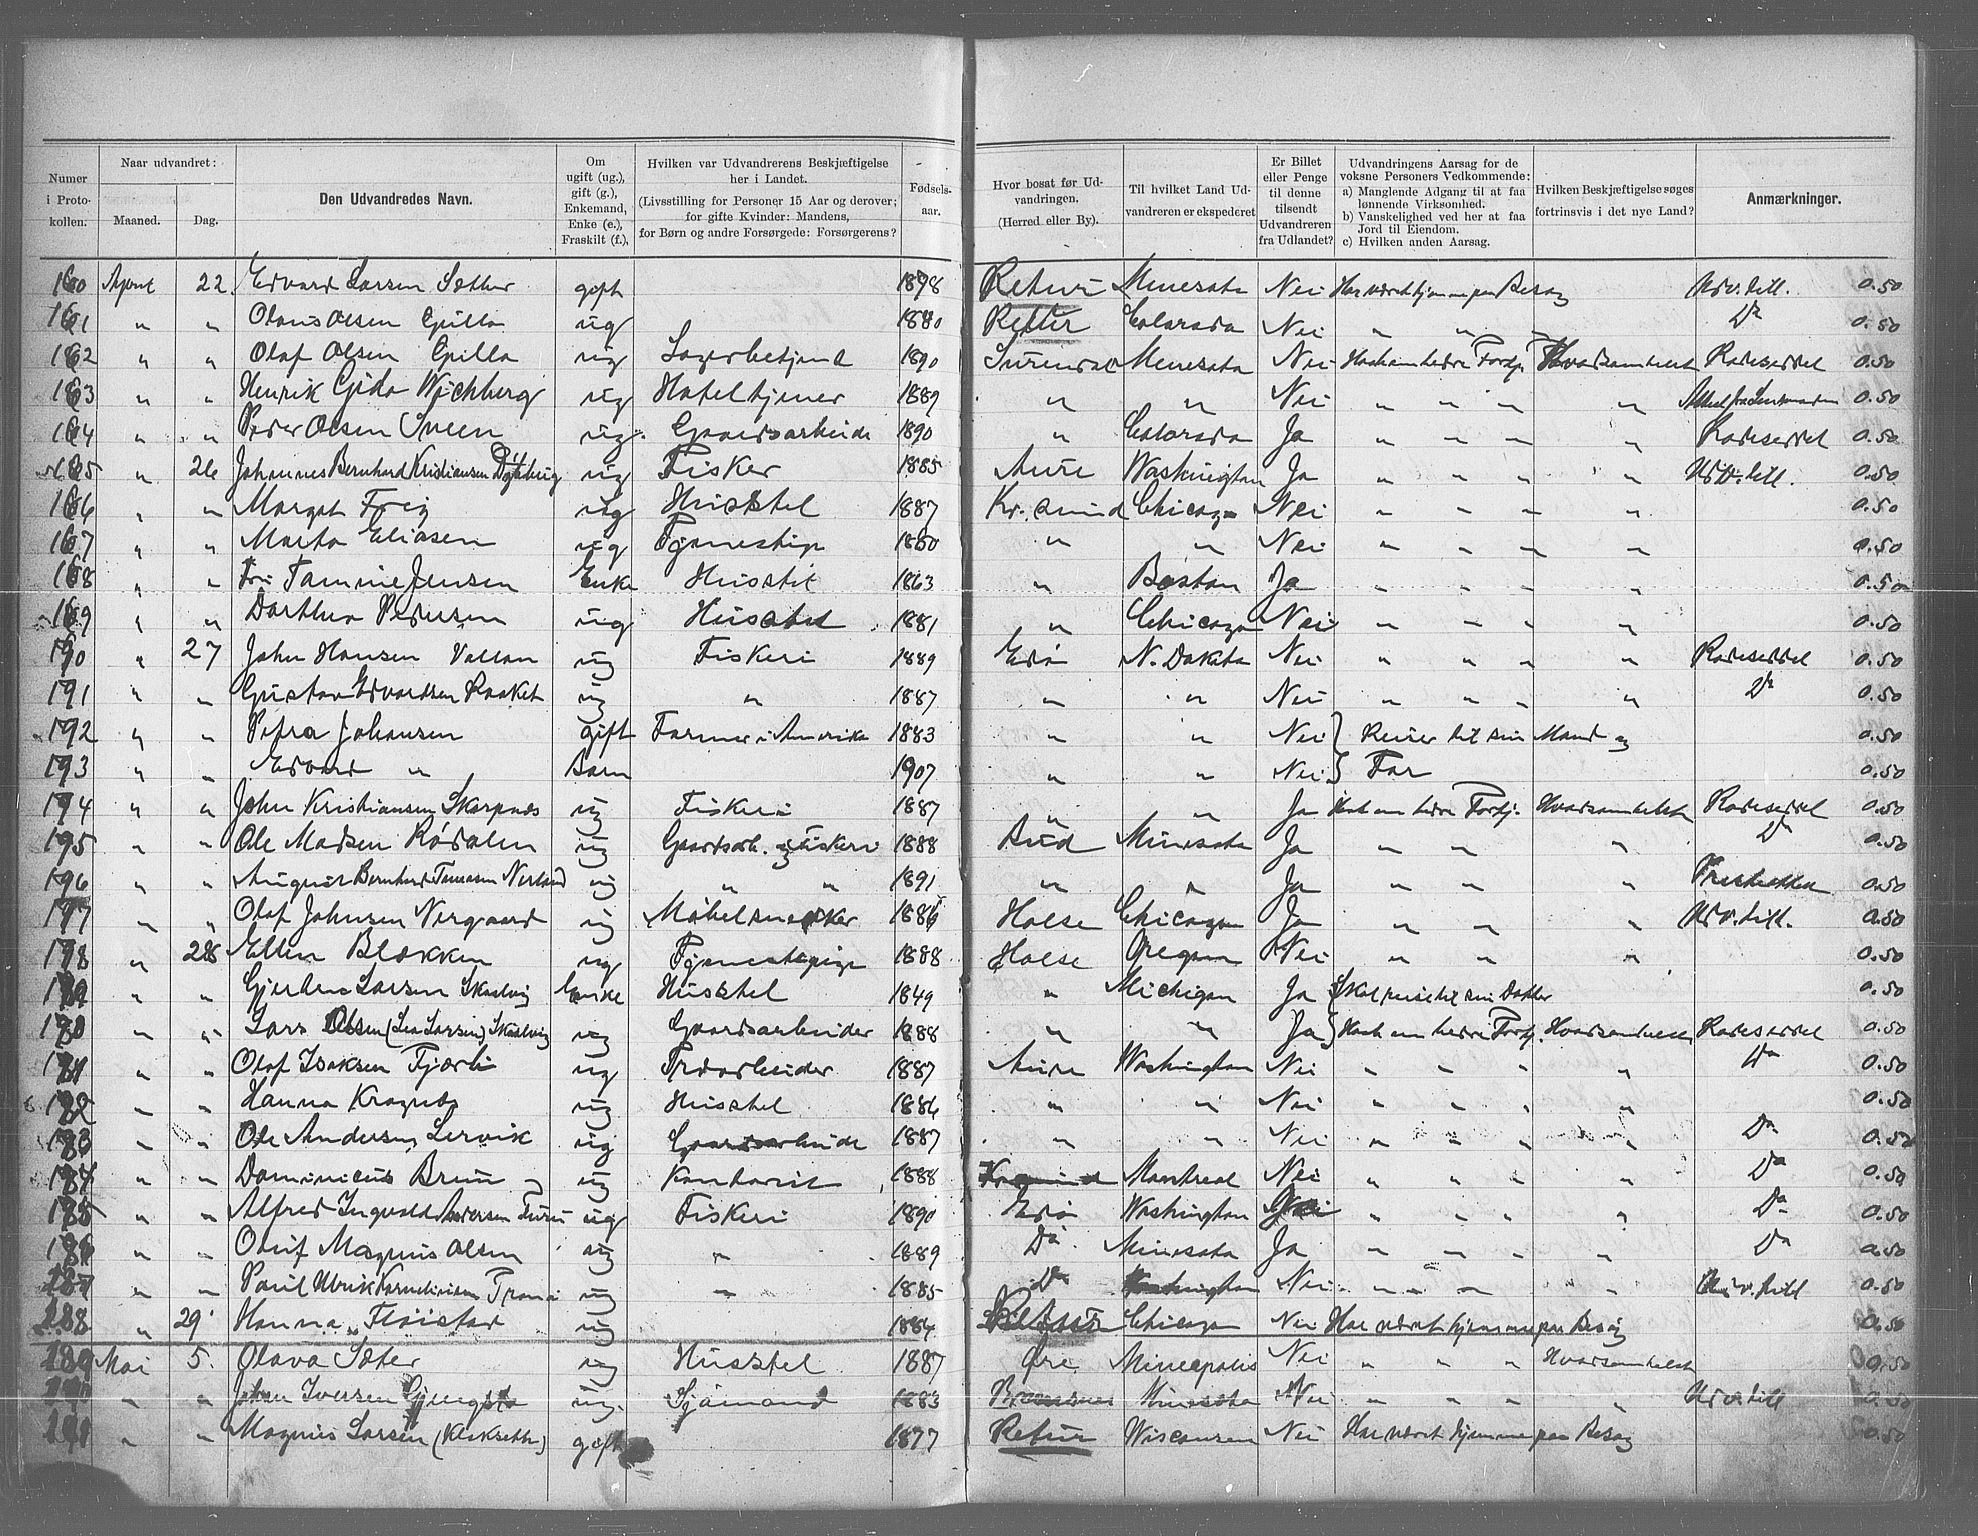 Numer i Protokollen. | Naar udvandret: Maaned. Dag. | Den Udvandredes Navn. | Om ugift (ug.), gift (g.), Enkemand, Enke (e.), Fraskilt (f.), | Hvilken var Udvandrerens Beskjæftigelse her i Landet. (Livsstilling for Personer 15 Aar og derover; for gifte Kvinder: Mandens, for Børn og andre Forsørgede: Forsørgerens? | Fødselsaar. | Hvor bosat før Udvandringen. (Herred eller By). | Til hvilket Land Udvandreren er ekspederet | Er Billet eller Penge til denne tilsendt Udvandreren fra Udlandet? | Udvandringens Aarsag for de voksne Personers Vedkommende: a) Manglende Adgang til at faa lønnende Virksomhed. b) Vanskelighed ved her at faa Jord til Eiendom. c) Hvilken anden Aarsag. | Hvilken Beskjæftigelse søges fortrinsvis i det nye Land? | Anmærkninger.
160 April 22. Edvard Larsen Sætter gift 1878 Retur Minesota Nei Har været hjemme paa Besøg Udv. till. 0.50
161 " " Olaus Olsen Gjilla ug 1880 Retur Colorado Nei " " " Do 0.50
162 " " Olaf Olsen Gjilla ug Lagerbetjent 1890 Surendal Minesota Nei Haab om bedre Fortj. Hvadsomhelst Rodeseddel 0.50
163 " " Henrik Gida Wichberg ug Hoteltjener 1889 " " Nei " " " " 0.50
164 " " Peder Olsen Sveen ug. Gaardsarbeide 1890 " Colorado Ja " " " " Rodeseddel 0.50
165 " 26 Johannes Bernhard Kristiansen ug Fisker 1885 Aure Washington Ja " " " " Udv. till. 0.50
166 " " Margot Frey ug Husstel 1887 Kr.sund Chicago Nei " " " " 0.50
167 " " Marta Eliasen ug Tjenestepige " " Nei " " " " 0.50
168 " " Fru Jensen Enke Husstel 1863 " Boston Ja " " " " 0.50
169 " " Dorthea Pedersen ug Husstel 1881 " Chicago Nei " " " 0.50
170 " 27 John Hansen Vollan ug Fiskeri 1889 Edø N. Dakota Nei " " " " Rodeseddel 0.50
191 " " Gustav Edvardsen Raaket ug " 1887 " " Nei " " " " Do 0.50
192 " " Petra Johansen gift Farmer i Amerika 1883 " " Nei } Reiser til sin Mand og 0.50
193 " " Edvard " Barn 1907 " " Nei } Far 0.50
194 " " John Kristiansen Skarpnes ug Fiskeri 1887 " " Ja Haab om bedre Fortj. Hvadsomhelst Rodeseddel 0.50
195 " " Ole Madsen Rødalen ug Gaardsarb. og Fiskeri 1888 Bud Minesota Ja " " " Do 0.50
196 " " August Bernhard Tomasen Nerland ug " " 1891 " " Ja " " " 0.50
197 " " Olaf Johnsen Norgaard ug Møbelsnedker 1886 Halse Chicago Ja " " " Udv. till. 0.50
198 " 28 Ellen Blekken ug Tjenestepige 1888 Halse Oregon Nei " " " 0.50
179 " " Larsen Skaalvig Enke Husstel 1849 " Michigan Ja { Skal reise til sin Datter 0.50
180 " " Lars Olsen (Lea Larsen) Skaalvig ug Gaardsarbeider 1888 " " Ja } Haab om bedre Fortj. Hvadsomhelst Rodeseddel 0.50
181 " " Olaf Isaksen Fjærli ug Trdarbeider 1887 Aure Washington Nei " " " " Do 0.50
182 " " Hanna Kragnes ug Husstel 1886 " " Nei " " " " 0.50
183 " " Ole Andersen Lervik ug Gaardsarbeide 1887 " " Nei " " " " Do 0.50
184 " " Dominicus Bruun ug Kontorist 1888 Montreal Nei " " " " Do 0.50
185 " " Alfred Ingvald Andersen ug Fiskeri 1890 Edø Washington Nei " " " " Do 0.50
186 " " Oluf Magnus Olsen ug " 1889 Do Minesota Ja " " " " Do 0.50
187 " " Paul Ulrik Korneliusen ug " 1885 Do Washington Nei " " " Udv. till 0.50
188 " 29 Hanna Fløistad ug 1884 Chicago Nei Har været hjemme paa Besøg 0.50
189 Mai 5. Olava Sæter ug Husstel 1887 Øre Mineapolis Nei " " " Hvadsomhelst 0.50
190 " " Johan Iversen ug. Sjømand 1883 Bremsnes Minesota Nei " " " " Udv. till 0.50
191 " " Magnus Larsen gift 1877 Retur Wisconsen Nei Har været hjemme paa Besøg 0.50